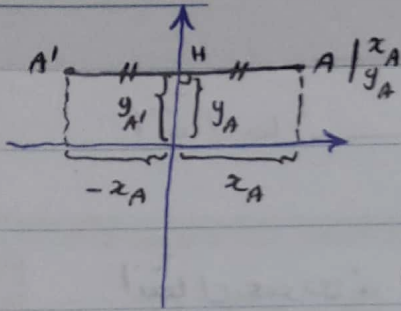 A' H A | x_A
y_A
y_A' y_A
-x_A x_A